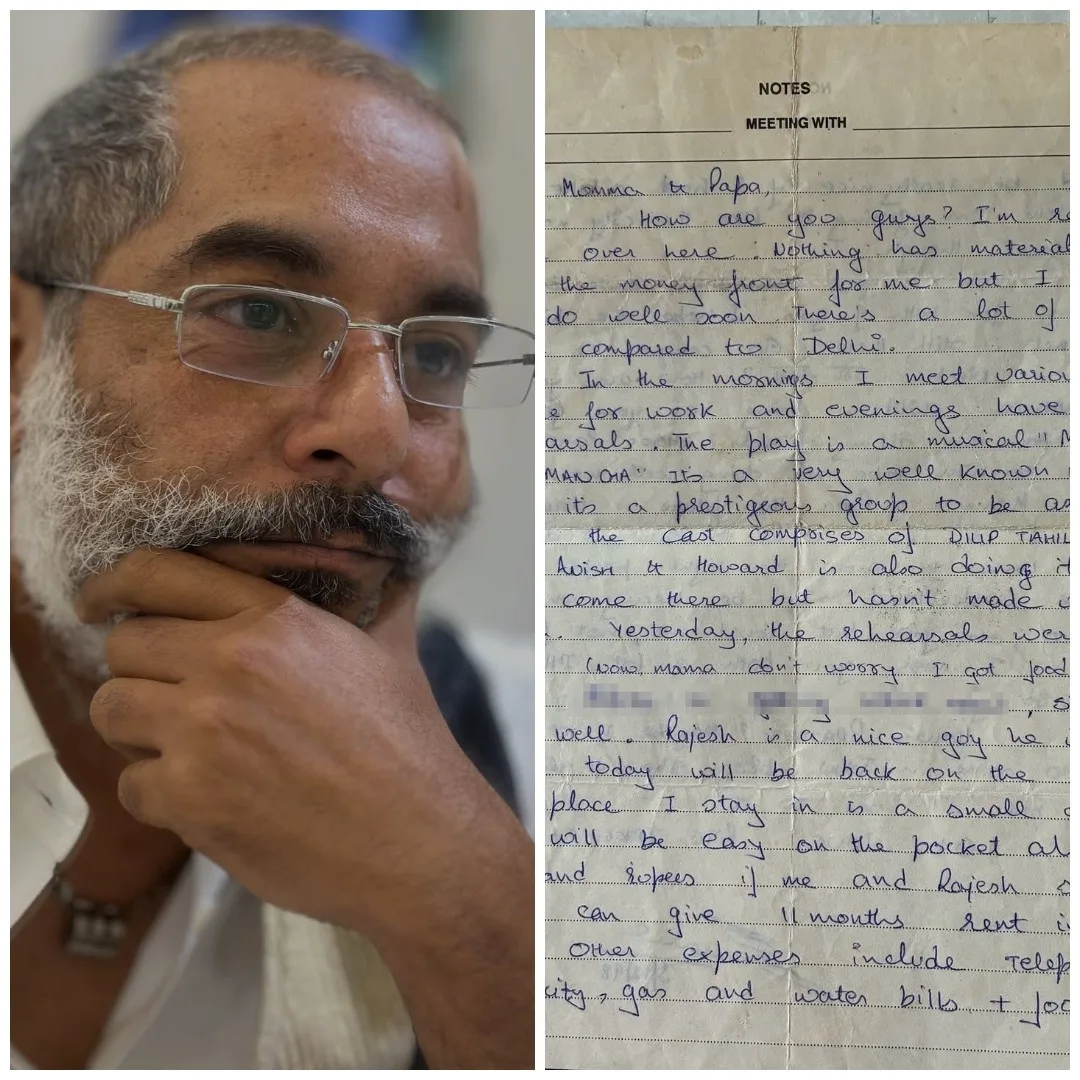 NOTES
MEETING WITH
Momma & Papa,
How are you guys? I'm
over here. Nothing has
the money front for me but I
do well soon There's a lot of
compared to Delhi.
In the mornings I meet
for work and evenings have
The play is a musical "
MANCHA" Its a very well known
its a prestigeous group to be
the cast comprises of DILIP
Avish & Howard is also doing
come there but hasn't made
Yesterday, the rehearsals
(now mama don't worry I got food
well. Rajesh is a nice guy he
today will be back on the
place I stay in is a small
will be easy on the pocket
rupees if me and Rajesh
can give 11 months rent
Other expenses include
gas and water bills +